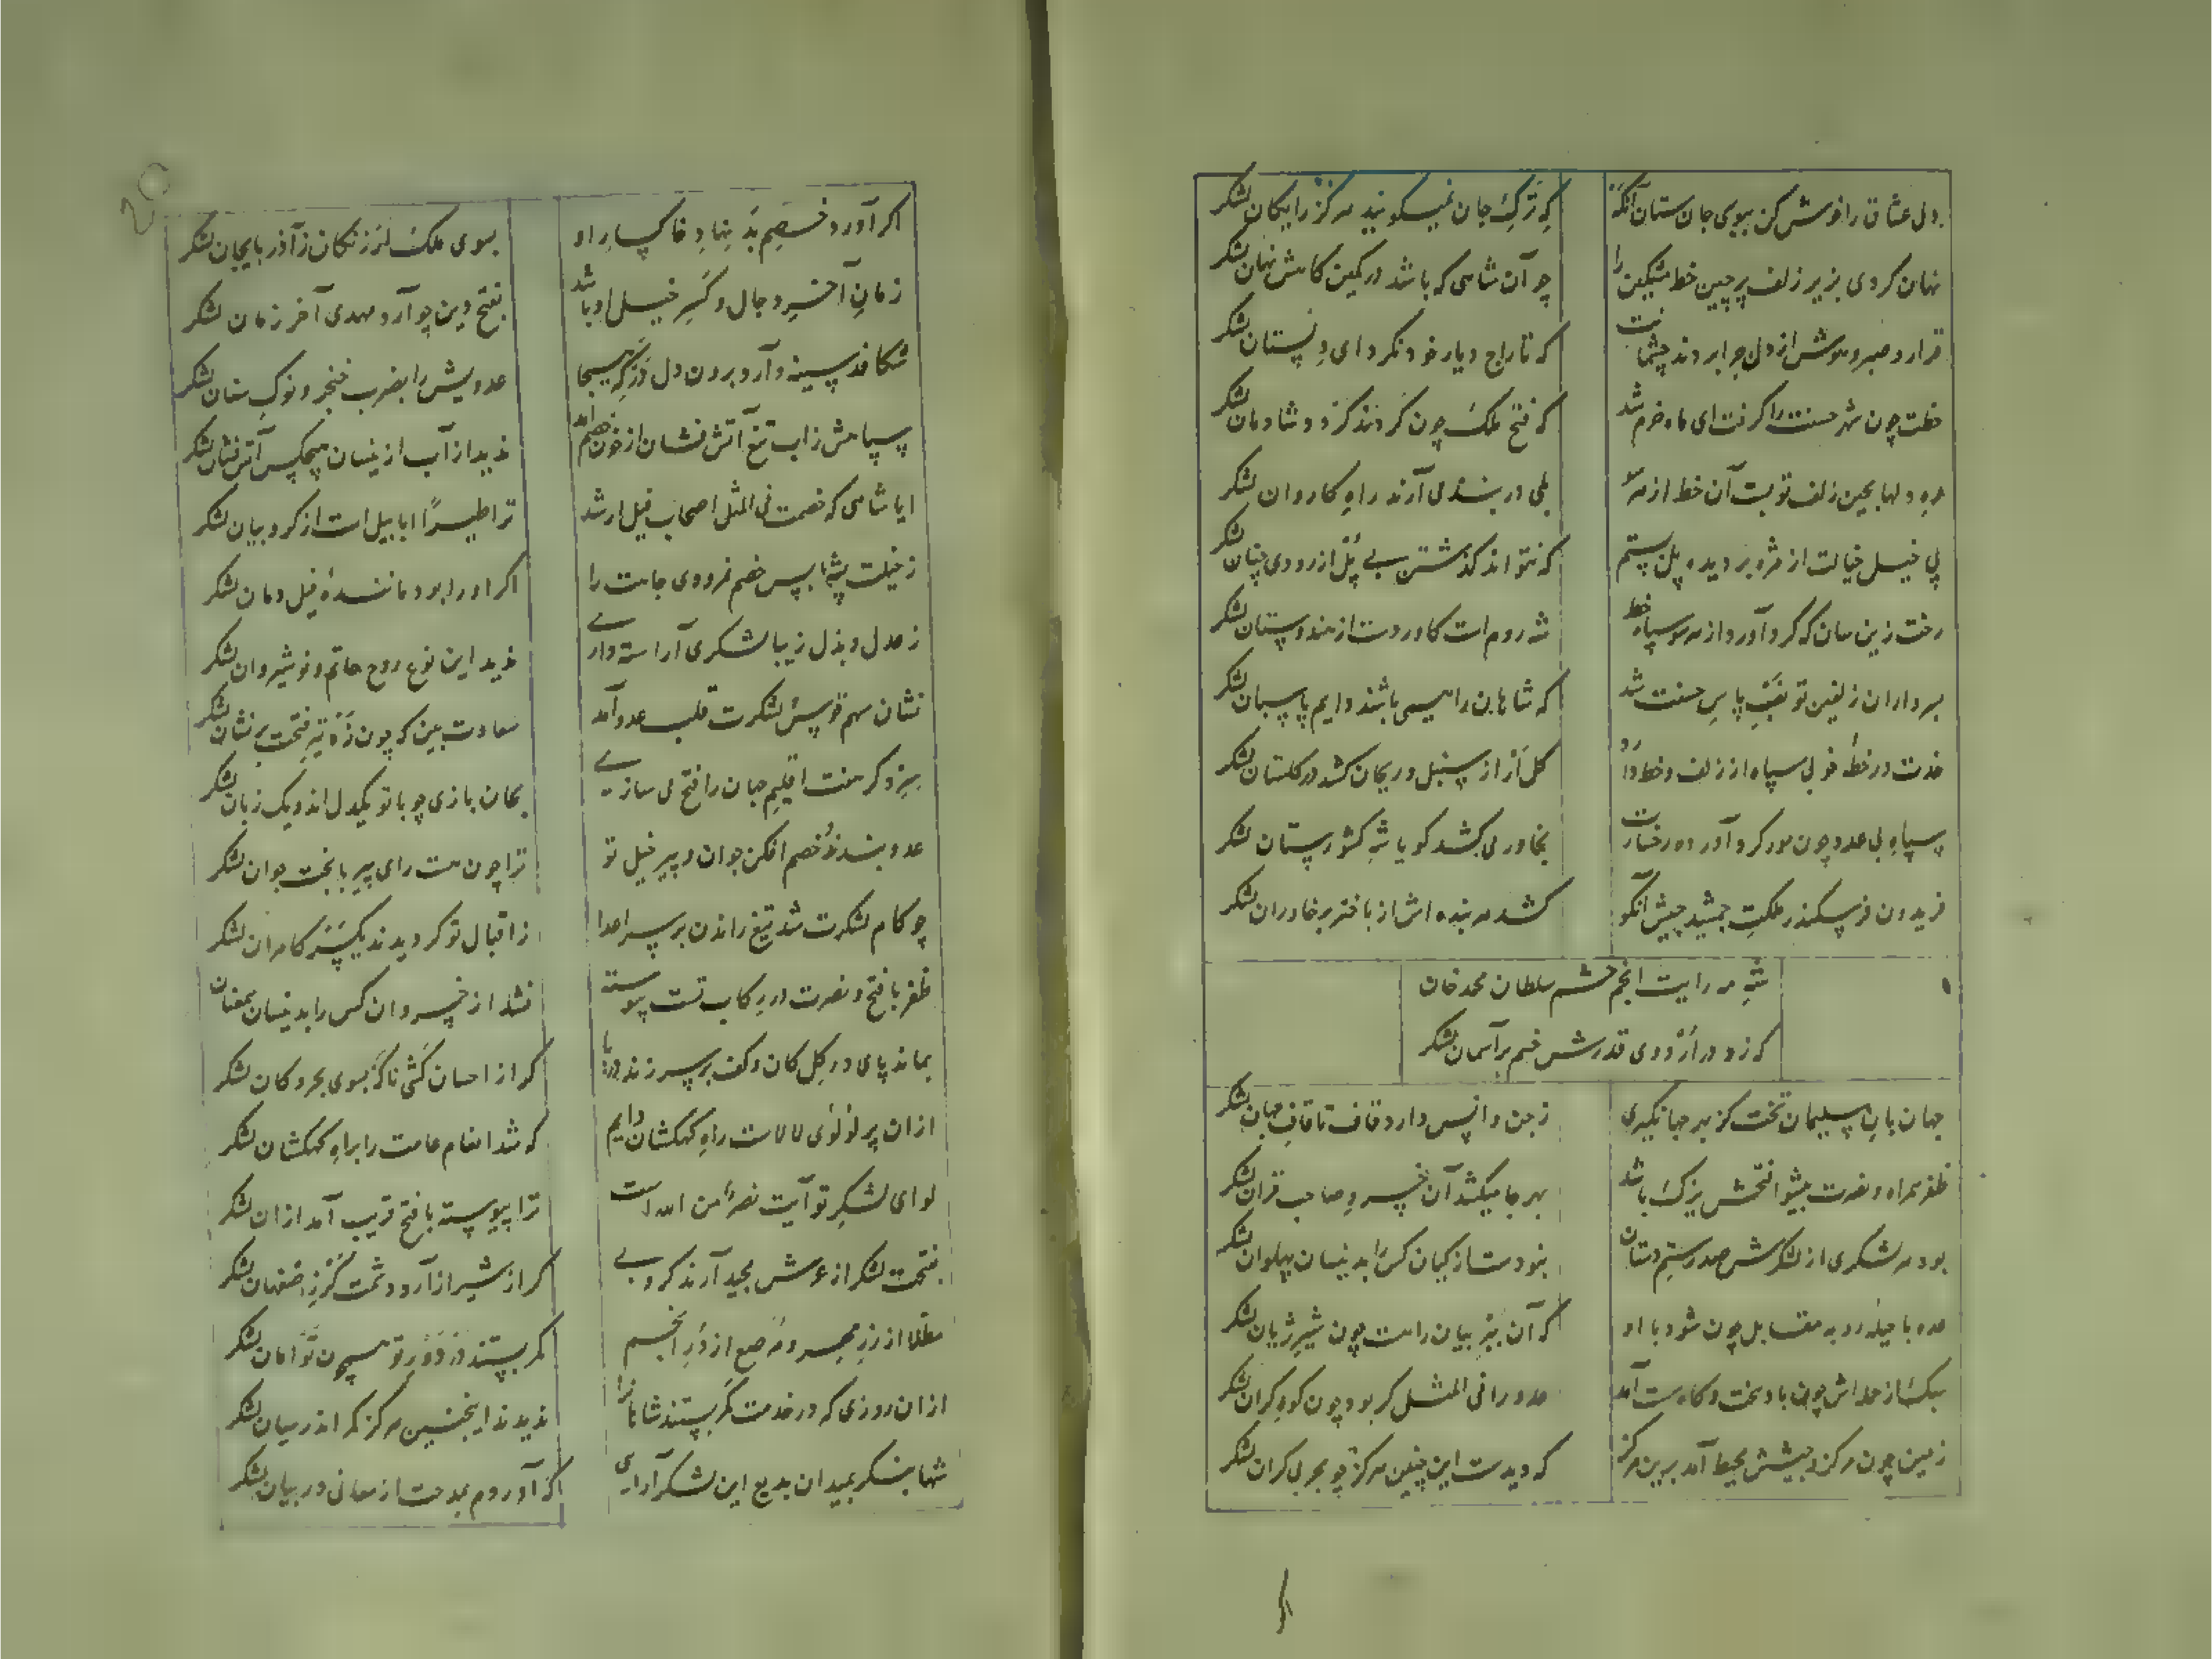 دل عشاق را خوش کن ببوی جان ستان آنکه
که ترک جان نمیکویند هرکز رایکان لشکر
نهان کردی بزیر زلف پرچین خط مشکین را
چو آن شاهی که باشد در کمین کاهش نهان لشکر
قرار و صبر و هوش از دل چرا بردند چشمانت
که تاراج دیار خود نکرد ای دلستان لشکر
خطت چون شهر حسنت را کرفت ای ماه خرم شد
که فتح ملک چون کردند کردد شادمان لشکر
ره دلها بچین زلف تو بست آن خط از هر سو
بلی در بند می آرند راه کاروان لشکر
پی خیل خیالت از مژه بر دیده پل بستم
که نتواند کذشتن بی پل از رودی چنان لشکر
رخت زین سان که کرد آورد از هر سو سپاه خط
شه روم است کاوردست از هندوستان لشکر
سرداران زلفین تو بقیت پاس حسنت شد
که شاهان را همی باشند دایم پاسبان لشکر
خدت در خطه خوبی سپاه از زلف و خط دارد
کل آراز سنبل و ریحان کشد در کلستان لشکر
سپاه بی عدد چون مور کرد آورده رخسارت
بخاور می کشد کویا شه کشورستان لشکر
فریدون فر سکندر ملکت جمشید جیش آنکو
کشد هر بنده اش از باختر بر خاوران لشکر
شه مه رایت انجم حشم سلطان محمد خان
که زد در اردوی قدرش خیم بر آسمان لشکر
جهان بان سلیمان تخت کز بهر جهانگیری
ز جن و انس دارد قاف تا قاف جهان لشکر
ظفر همراه و نصرت پیشوا فتحش یزک باشد
بهر جا میکشد آن خسرو صاحب قران لشکر
بود هر لشکری از لشکرش صد رستم دستان
نبودست از کیان کس را بدینسان پهلوان لشکر
عدو با حیله روبه مقابل چون شود با او
که آن ببر بیان را هست چون شیر ژیان لشکر
سبک از حمله اش چون باد سخت و کاه سست آمد
عدو را فی المثل کر بود چون کوه کران لشکر
زمین چون مرکز و جیشش محیط آمد برین مرکز
که دیدست این چنین هرکز چو بحر بی کران لشکر
اکر آورد خصم بد نهاد خاکسار او
بسوی ملک لرز نکان ز آذربایجان لشکر
زمان آخر و دجال و کبر خیل او باشد
بفتح دین چو آرد مهدی آخر زمان لشکر
شکافد سینه و آرد برون دل در کر هیجا
عدویش را بضرب خنجر و نوک سنان لشکر
سپاهش ز آب تیغ آتش فشان از خون خصم آمد
ندید از آب ازینسان هیچکس آتش فشان لشکر
ایا شاهی که خصمت فی المثل اصحاب فیل ار شد
ترا طیرا ابابیل است از کروبیان لشکر
ز خیلت پشه بس خصم نمرودی جاهت را
اکر او را بود مانندهٔ فیل دمان لشکر
ز عدل و بذل زیبا لشکری آراسته داری
ندید این نوع روح حاتم و نوشیروان لشکر
نشان سهم قوس لشکرت قلب عدو آمد
سعادت بین که چون زد تیر فتحت بر نشان لشکر
سزد کر هفت اقلیم جهان را فتح می سازی
بجان بازی چو با تو یکدل اند و یک زبان لشکر
عدو بندند و خصم افکن جوان و پیر خیل تو
ترا چون هست رای پیر با بخت جوان لشکر
چو کام لشکرت شد تیغ راندن بر سر اعدا
ز اقبال تو کردیدند یکسر کامران لشکر
ظفر با فتح و نصرت در رکاب تست پیوسته
نشد از خسروان کس را بدینسان همعنان لشکر
بماند پای در کل کان و کف بر سر زند دریا
کر از احسان کشی ناکه بسوی بحر و کان لشکر
از آن پر لؤلؤی لالاست راه کهکشان دایم
که شد انعام عامت را براه کهکشان لشکر
لوای لشکر تو آیت نصر من الله است
ترا پیوسته با فتح قریب آمد از آن لشکر
بفتحت لشکر از عرش مجید آرند کروبی
کر از شیراز آرد دشمنت کر ز اصفهان لشکر
مطلا از زر مهر و مرصع از در انجم
کمر بستند در دور تو همچون توامان لشکر
از آن روزی که در خدمت کمر بستند شاهان را
ندیدند اینچنین هرکز کمر اندر میان لشکر
شها بنکر بمیدان بدیع این لشکر آرایی
که آوردم بمدحت از معانی در بیان لشکر